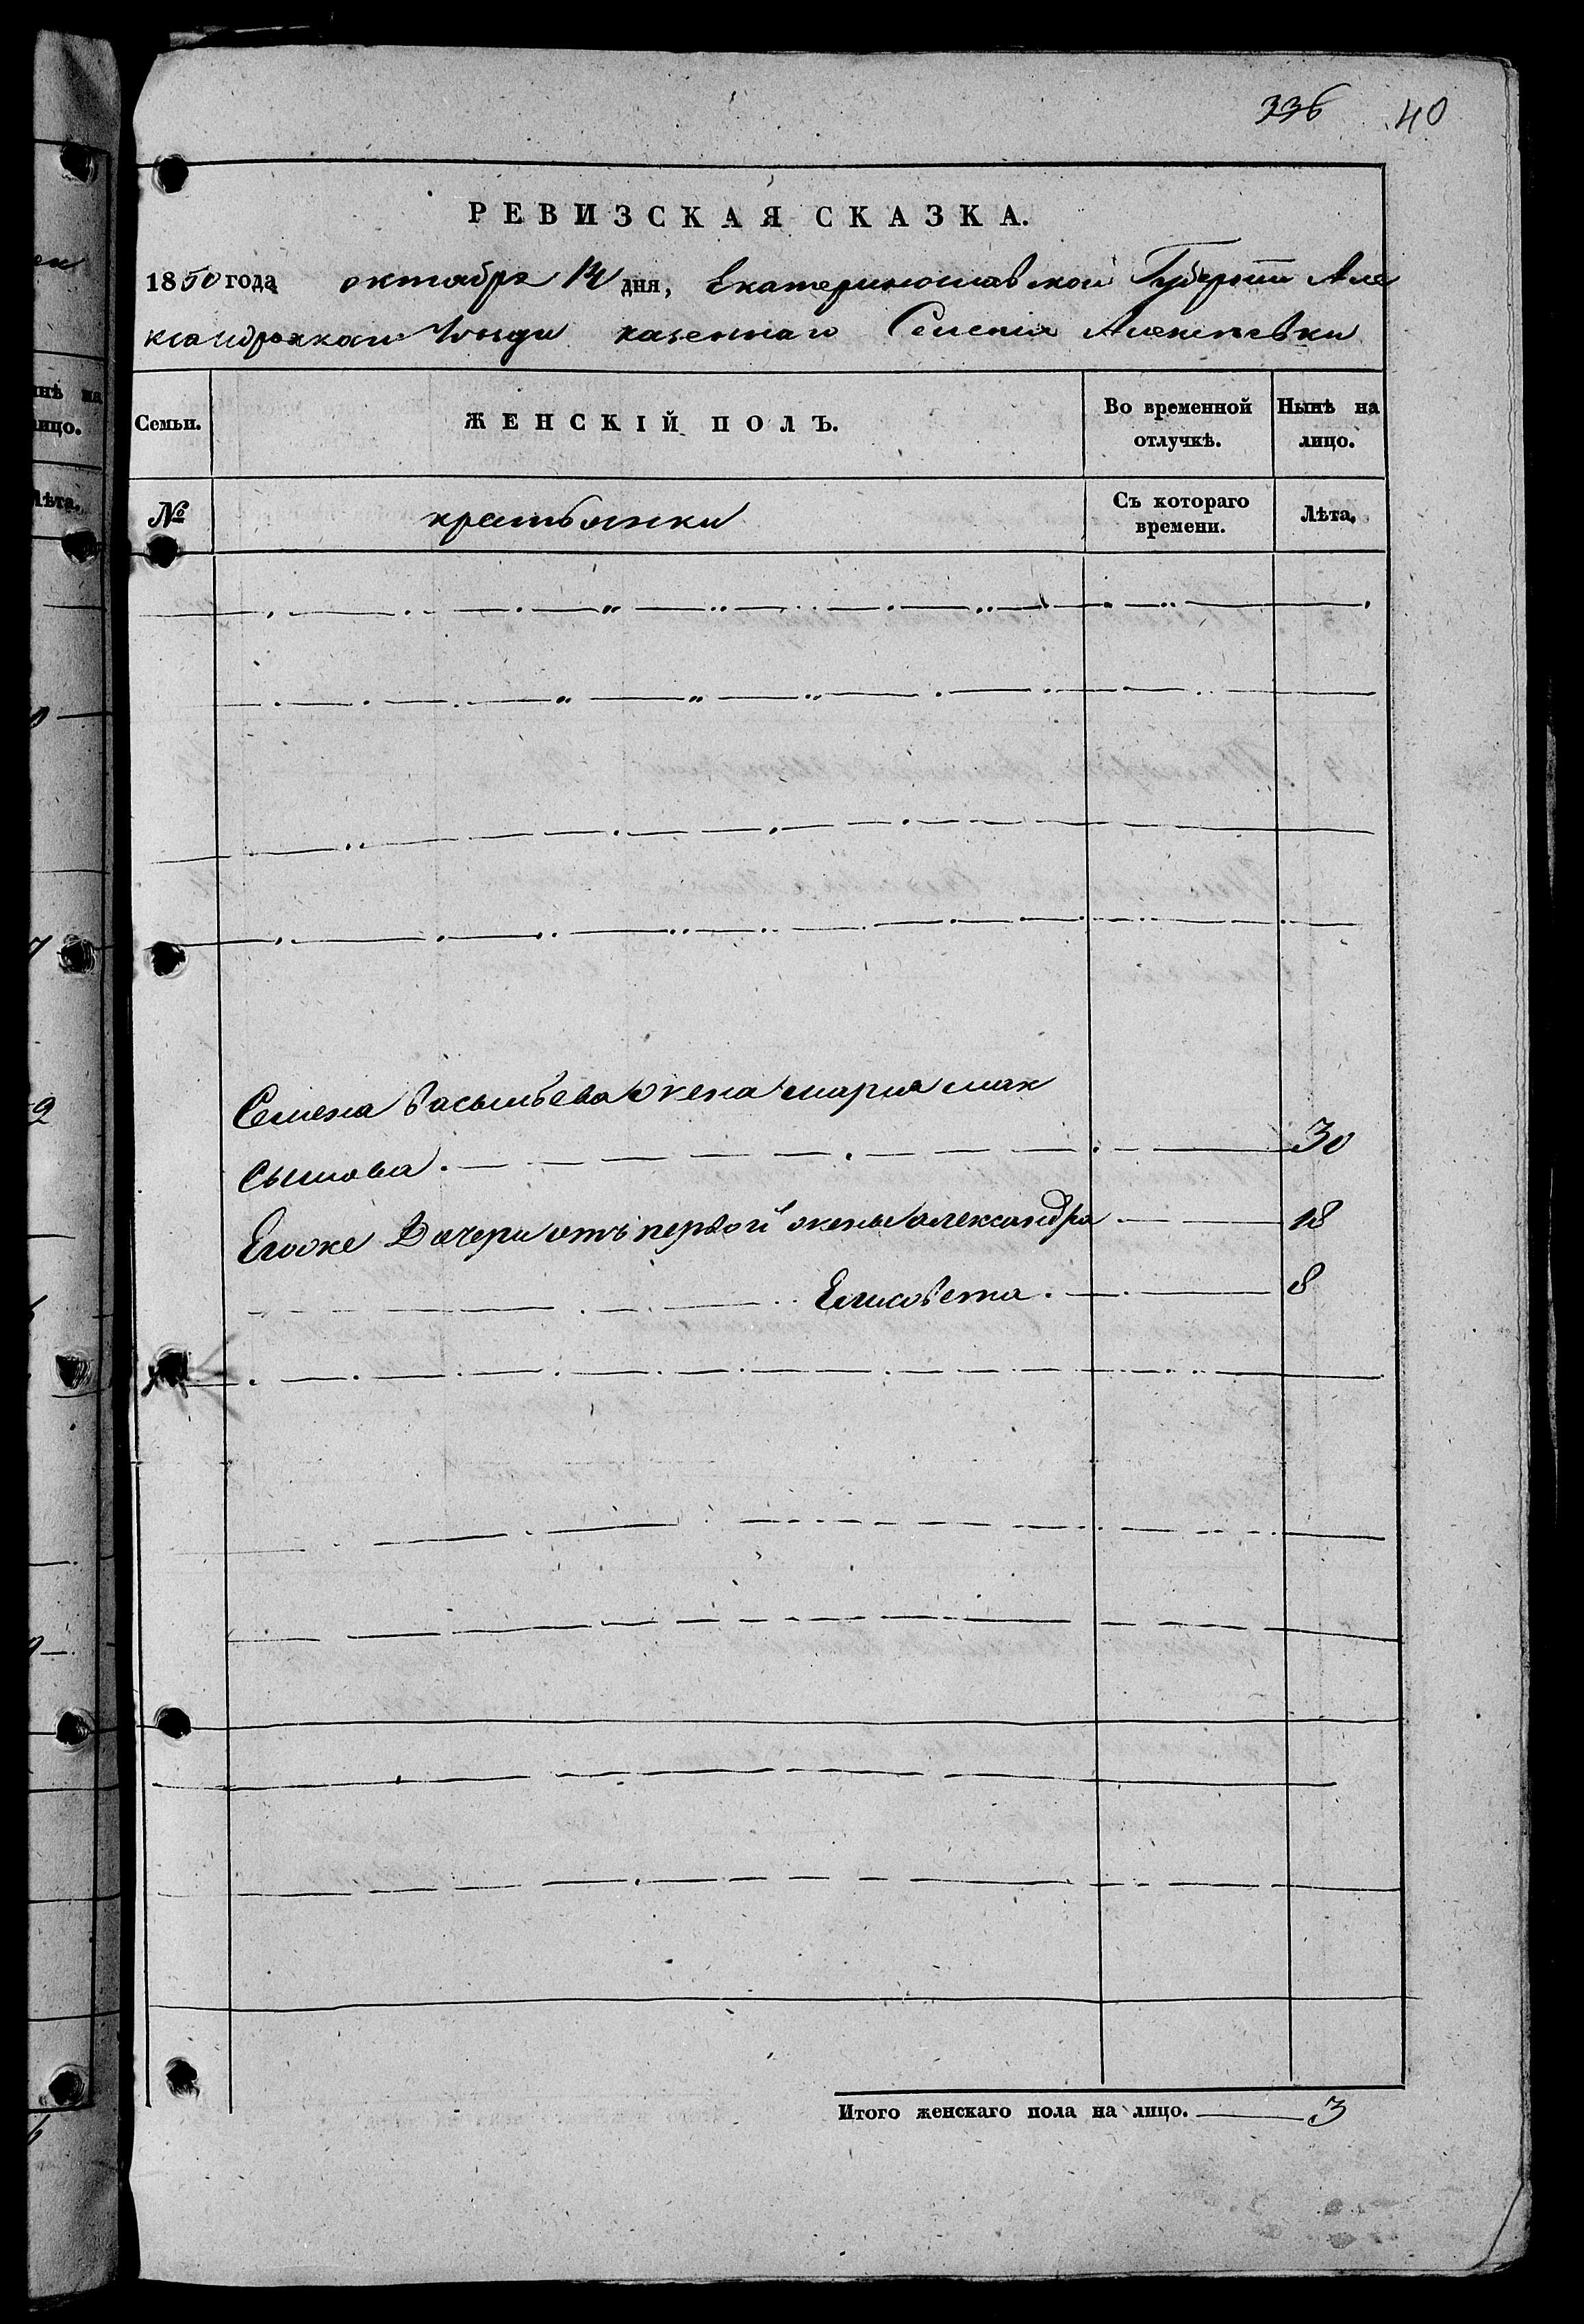 336 40
РЕВИЗСКАЯ СКАЗКА.
1850 года октября 14 дня, Екатеринославской Губернии Але
ксандровскаго казеннаго Селенія Алексеевки
Семьи.
ЖЕНСКІЙ ПОЛЪ.
Во временной отлучкѣ.
Нынѣ на лицо.
№
крестьянки
Съ котораго времени.
Лѣта.
Семена Васильева жена мария мак
сымова 30
Егоже Дочери отъ первой жены александра 18
Елисовета 8
Итого женскаго пола на лицо. 3
нѣ на
лицо.
Лѣта.